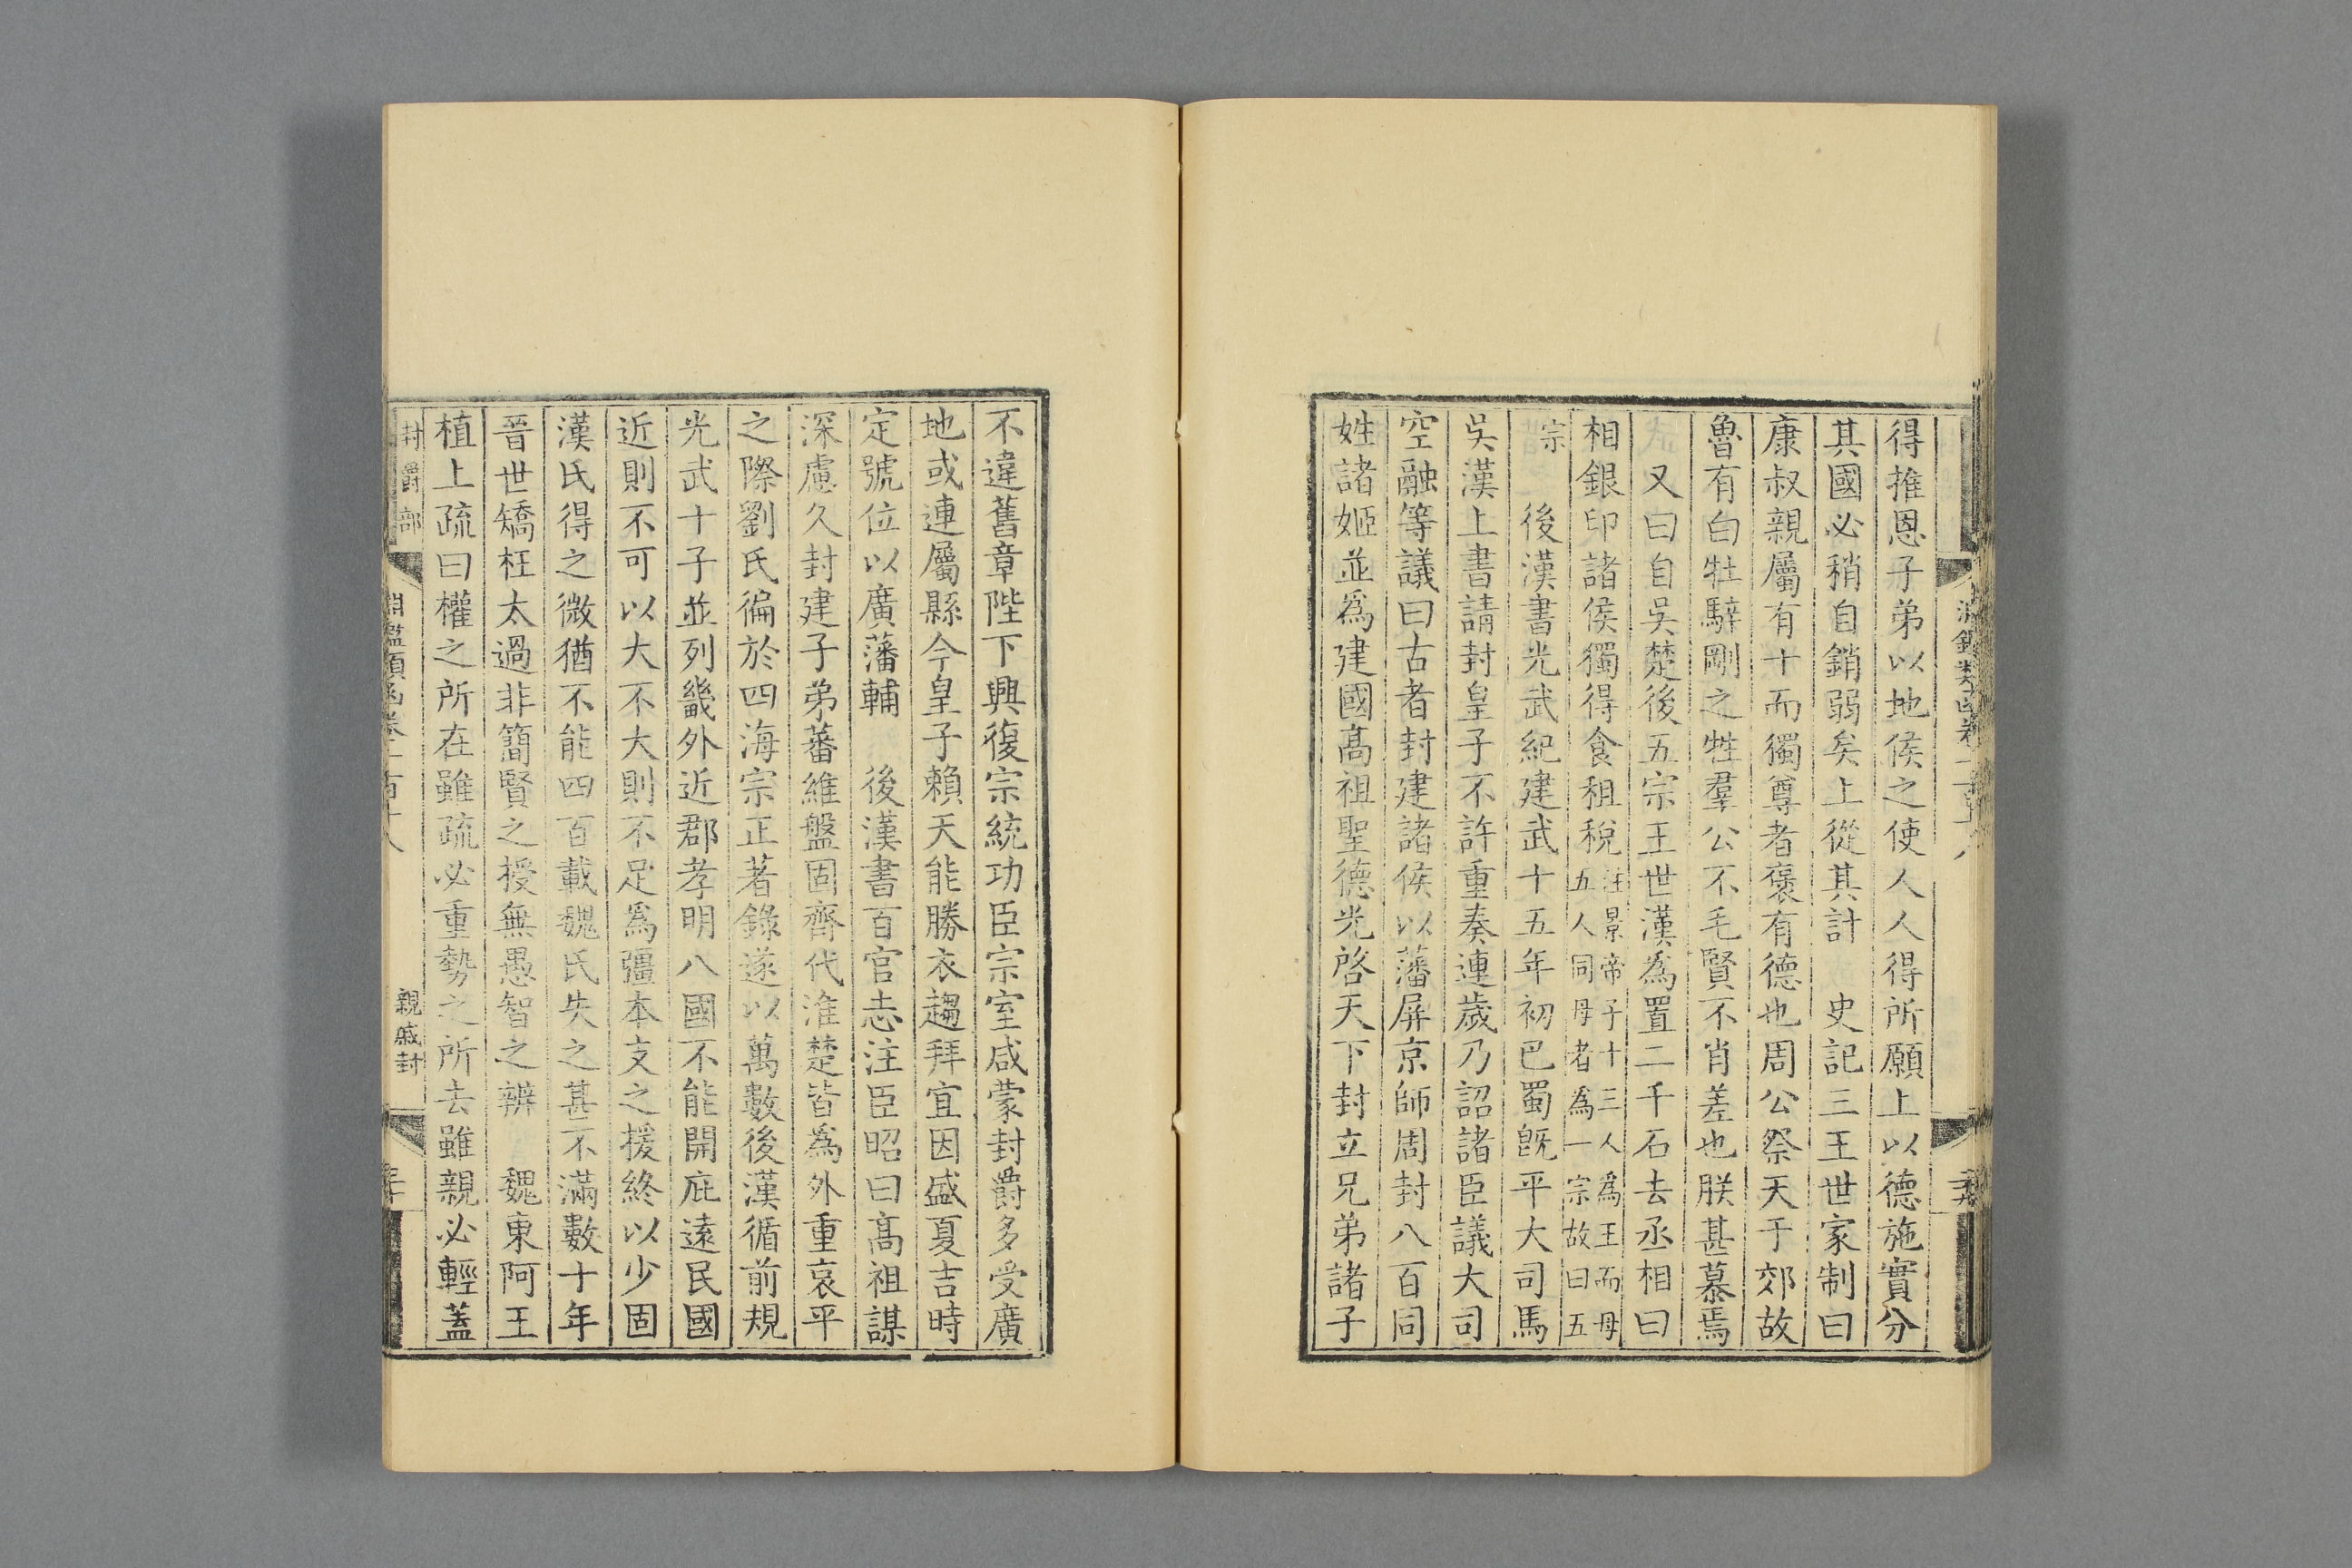 得推恩子弟以地侯之使人人得所願上以德施實分
其國必稍自銷弱矣上從其計　史記三王世家制曰
康叔親屬有十而獨尊者褒有德也周公祭天于郊故
魯有白牡騂剛之牲羣公不毛賢不肖差也朕甚慕焉
又曰自吳楚後五宗王世漢爲置二千石去丞相曰
相銀印諸侯獨得食租稅注景帝子十三人爲王而母
五人同母者爲一宗故曰五
宗
後漢書光武紀建武十五年初巴蜀旣平大司馬
吳漢上書請封皇子不許重奏連歲乃詔諸臣議大司
空融等議曰古者封建諸侯以藩屏京師周封八百同
姓諸姬並爲建國高祖聖德光啓天下封立兄弟諸子
不違舊章陛下興復宗統功臣宗室咸蒙封爵多受廣
地或連屬縣今皇子賴天能勝衣趨拜宜因盛夏吉時
定號位以廣藩輔　後漢書百官志注臣昭曰高祖謀
深慮久封建子弟蕃維盤固齊代淮楚皆爲外重哀平
之際劉氏徧於四海宗正著錄遂以萬數後漢循前規
光武十子並列畿外近郡孝明八國不能開庇遠民國
近則不可以大不大則不足爲彊本支之援終以少固
漢氏得之微猶不能四百載魏氏失之甚不滿數十年
晉世矯枉太過非簡賢之授無愚智之辨　魏東阿王
植上疏曰權之所在雖疏必重勢之所去雖親必輕蓋
封爵部
親戚封